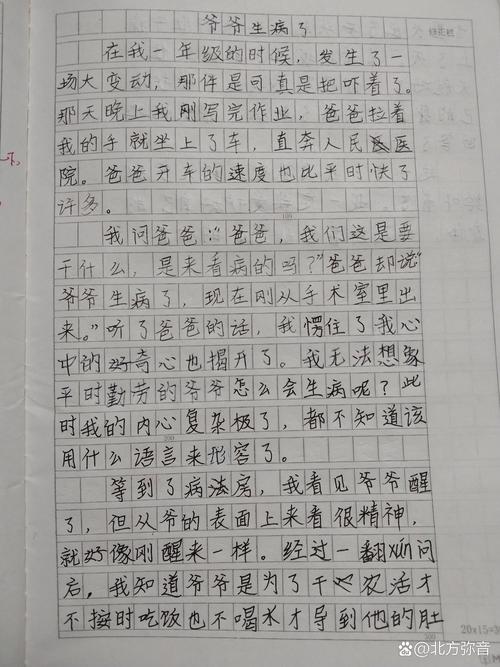 爷爷生病了
在我一年级的时候，发生了一
场大变动，那件是可真是把吓着了。
那天晚上我刚写完作业，爸爸拉着
我的手就坐上了车，直奔人民医
院。爸爸开车的速度也比平时快了
许多。
我问爸爸："爸爸，我们这是要
干什么，是来看病的吗？"爸爸却说"
爷爷生病了，现在刚从手术室里出
来。"听了爸爸的话，我愣住了我心
中的好奇心也揭开了。我无法想象
平时勤劳的爷爷怎么会生病呢？此
时我的内心复杂极了，都不知道该
用什么语言来形容了。
等到了病房，我看见爷爷醒
了，但从爷的表面上来看很精神，
就好像刚醒来一样。经过一翻xún问
后，我知道爷爷是为了干农活才
不接时吃饭也不喝水才导到他的肚
20×15=3
百家号/北方弥音